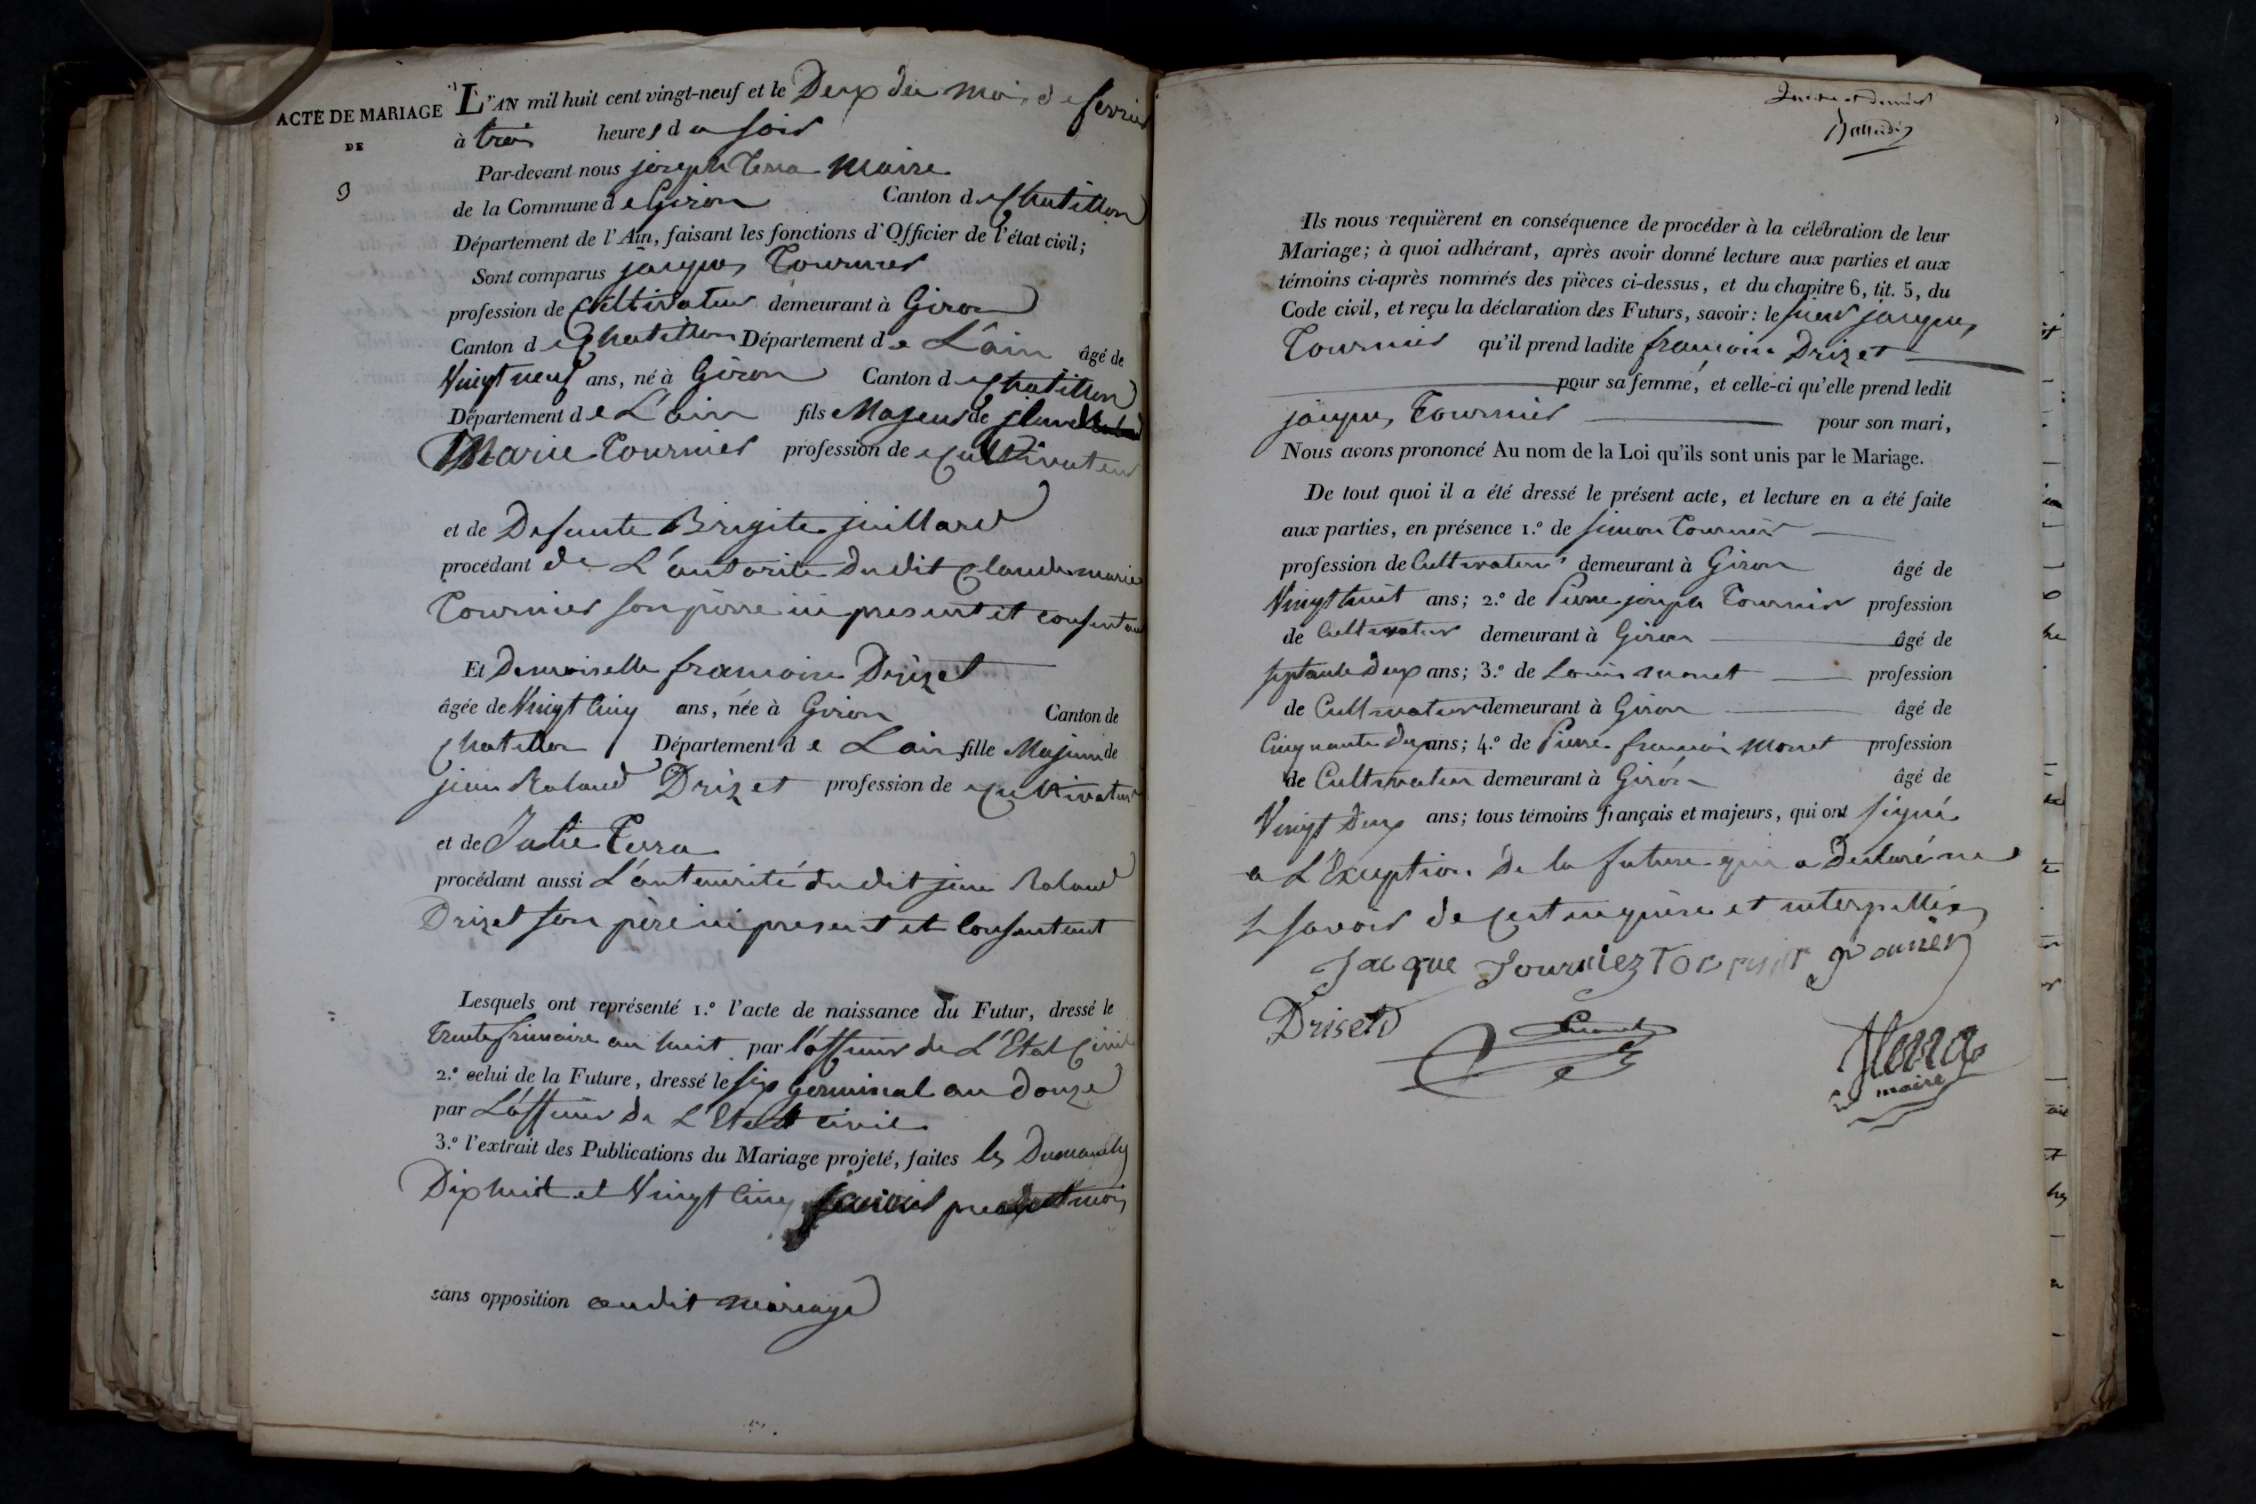 ACTE DE MARIAGE
DE
9
L'AN mil huit cent vingt-neuf et le Deux du mois de fevrier
à trois heures du soir
Par-devant nous joseph Terra Maire
de la Commune de Giron Canton de Chatillon
Département de l'Ain, faisant les fonctions d'Officier de l'état civil;
Sont comparus jacques Tournier
profession de Cultivateur demeurant à Giron
Canton de Chatillon Département de L'ain âgé de
Vingt neuf ans, né à Giron Canton de Chatillon
Département de L'ain fils Majeur de
Marie Tournier profession de Cultivateur
et de Defunte Brigite juillard
procédant de L'autorité dudit Claude marie
Tournier son pierre ici present et consentant
Et Demoiselle francoise Drizet
âgée de Vingt Cinq ans, née à Giron Canton de
Chatillon Département de Lain fille Majeure de
jean Roland Drizet profession de Cultivateur
et de Julie Terra
procédant aussi L'auteurité dudit jean Roland
Drizet son père ici present et Consentant
Lesquels ont représenté 1.º l'acte de naissance du Futur, dressé le
trente frimaire an huit par l'officier de L'Etat Civil
2.º celui de la Future, dressé le six Germinal an Douze
par L'officier de L'Etat Civil
3.º l'extrait des Publications du Mariage projeté, faites les Dimanches
Dix huit et Vingt Cinq janvier
sans opposition audit mariage
Ils nous requièrent en conséquence de procéder à la célébration de leur
Mariage; à quoi adhérant, après avoir donné lecture aux parties et aux
témoins ci-après nommés des pièces ci-dessus, et du chapitre 6, tit. 5, du
Code civil, et reçu la déclaration des Futurs, savoir: le sieur jacques
Tournier qu'il prend ladite francoise Drizet
pour sa femme, et celle-ci qu'elle prend ledit
jacques Tournier pour son mari,
Nous avons prononcé Au nom de la Loi qu'ils sont unis par le Mariage.
De tout quoi il a été dressé le présent acte, et lecture en a été faite
aux parties, en présence 1.º de simon Tournier
profession de Cultivateur demeurant à Giron âgé de
Vingt huit ans; 2.º de Pierre joseph Tournier profession
de Cultivateur demeurant à Giron âgé de
septante Deux ans; 3.º de Louis monet profession
de Cultivateur demeurant à Giron âgé de
Cinquante Deux ans; 4.º de Pierre francois Monet profession
de Cultivateur demeurant à Giron âgé de
Vingt Deux ans; tous témoins français et majeurs, qui ont signé
a L'Exception De la future qui a Declaré ne
savoir de cest enquise et interpellée
Jacque Tourniez
Driset
maire